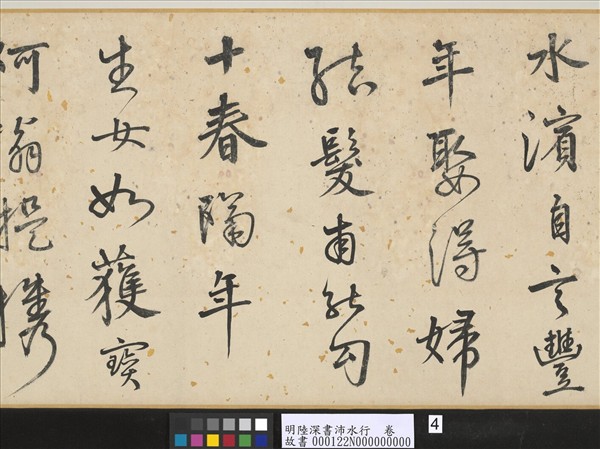 水濱自言豐
年娶得婦
結髮甫能勾
十春隔年
生女如獲寶
阿翁提攜
明陸深書沛水行 卷
故書 000122N000000000
4